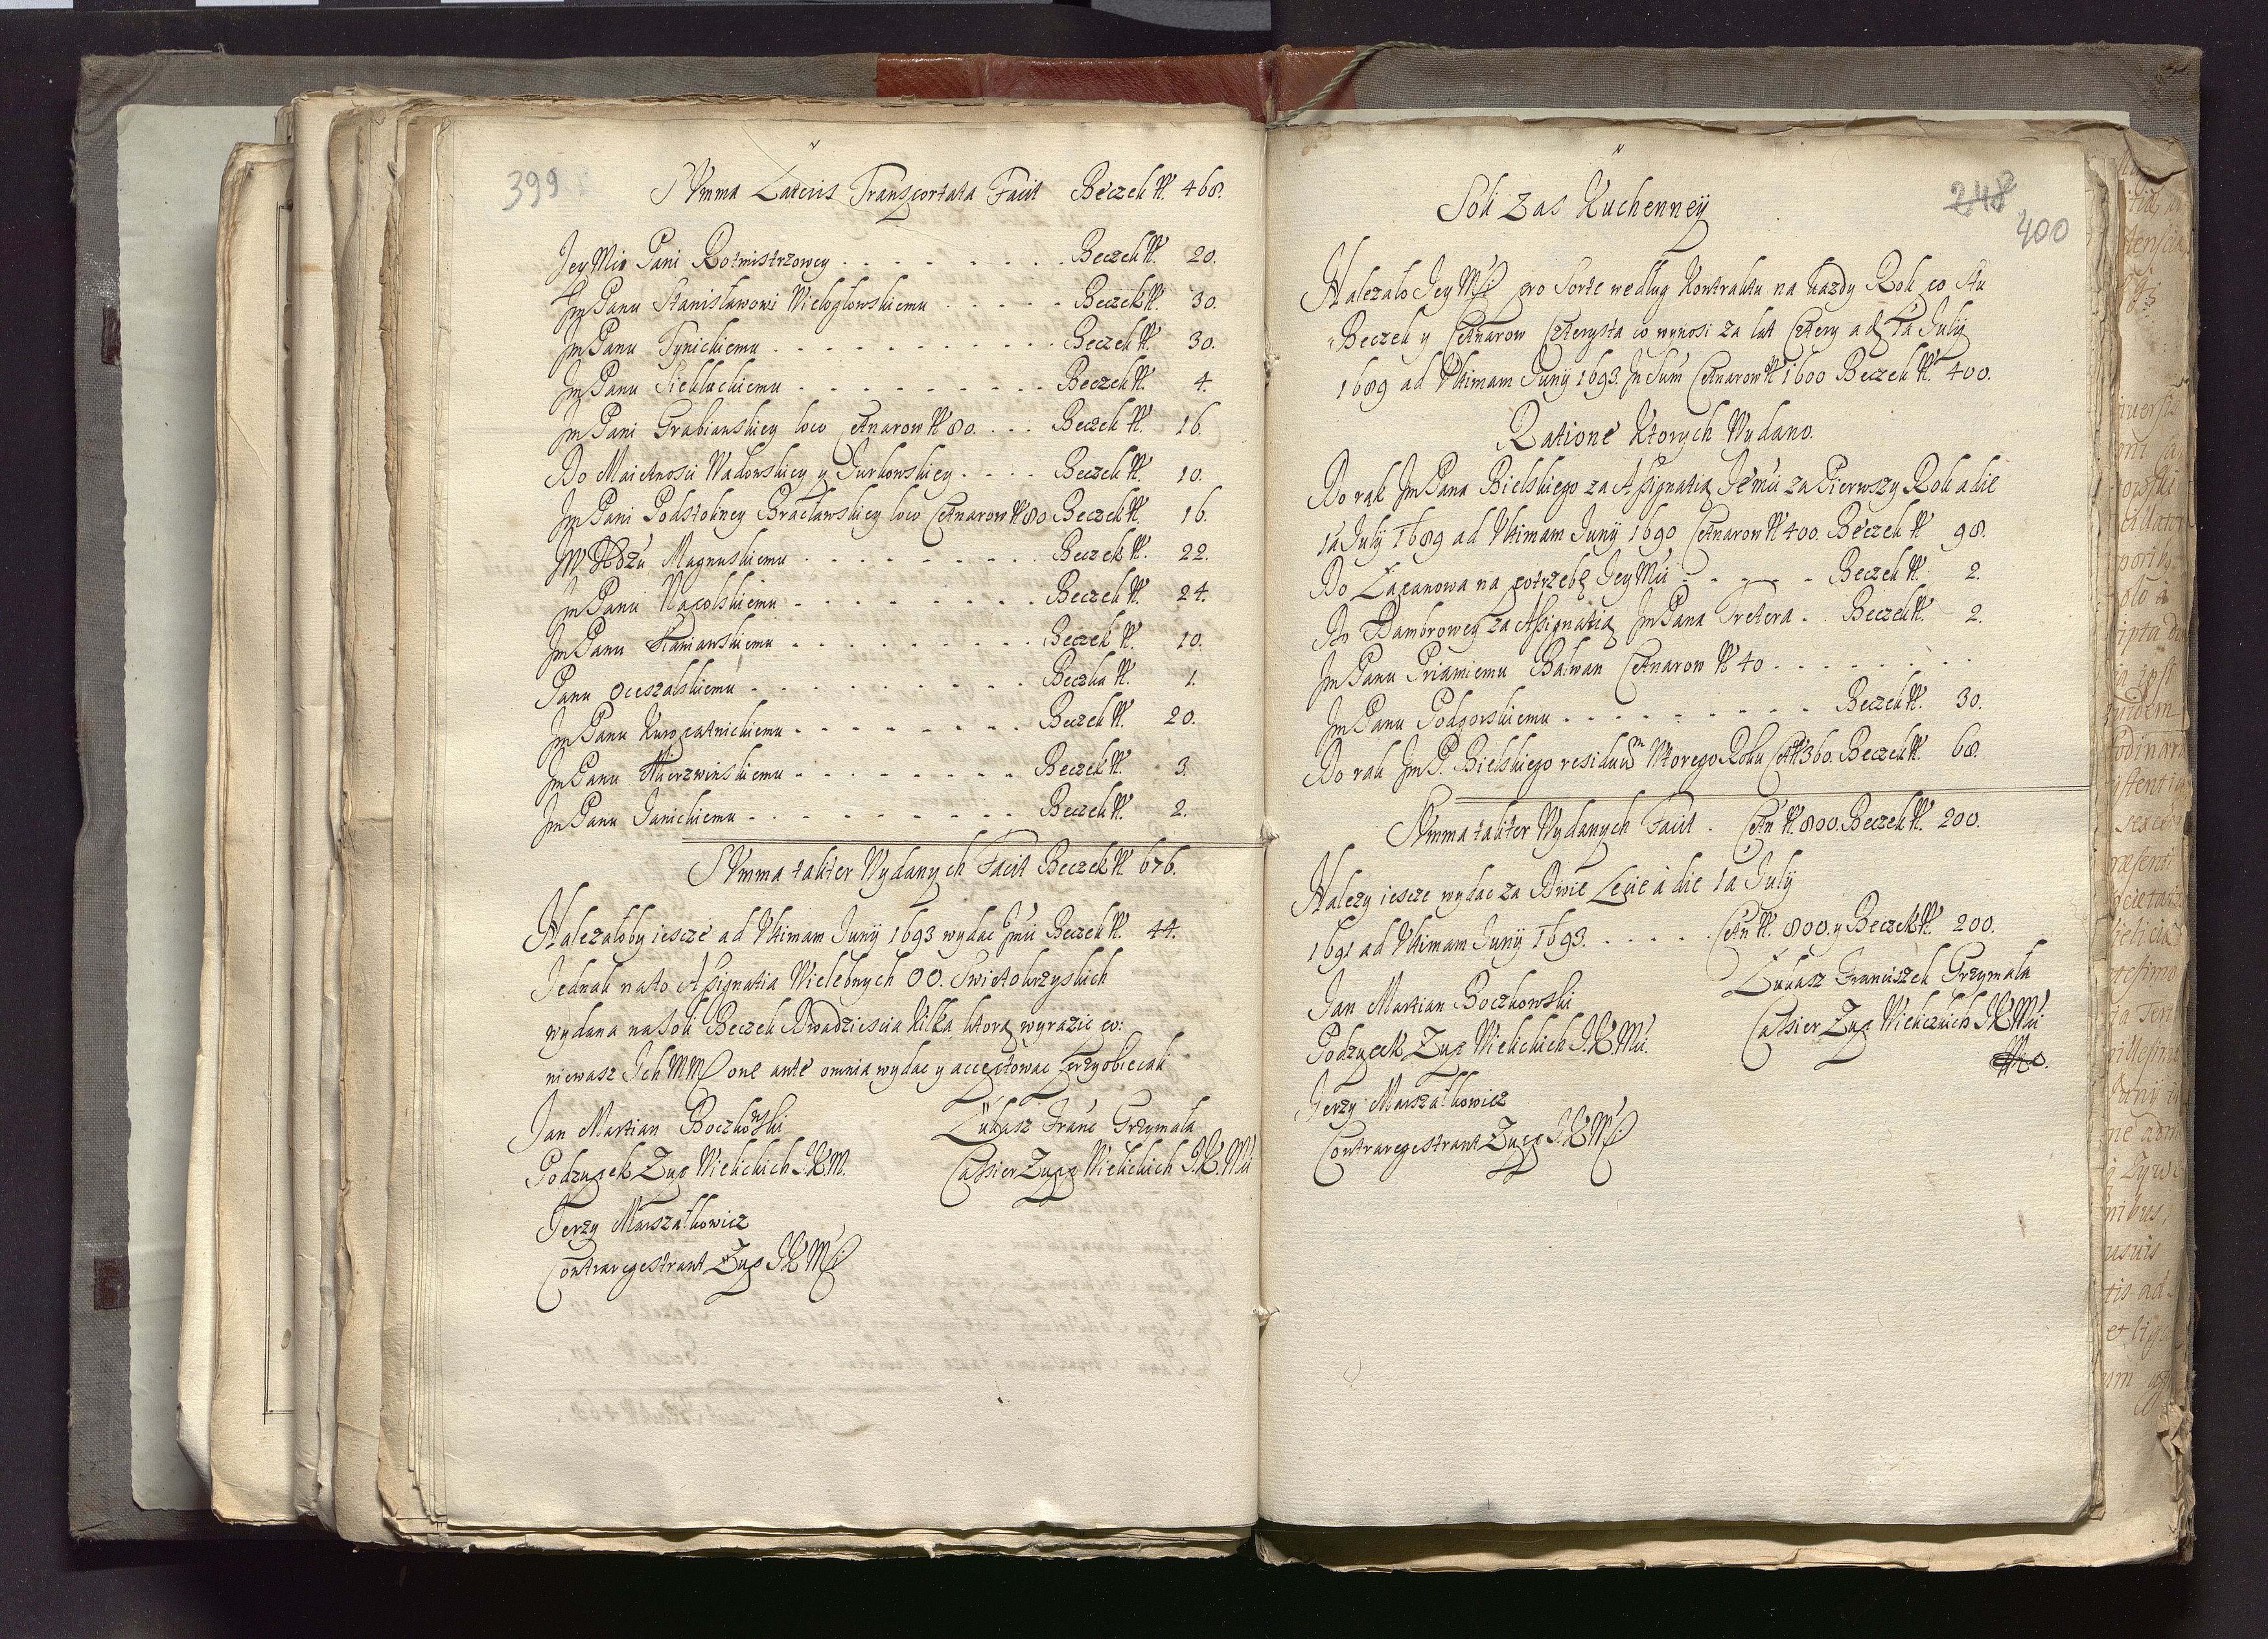 399
Summa Lateris Transportata Facit Beczek N. 468.
Jey Mci Pani Rotmistrzowey . . . . . . . . Beczek N. 20.
Jm Panu Stanisławowi Wielogłowskiemu . . . . . Beczek N. 30.
Jm Panu Tynickiemu . . . . . . . . . . . Beczek N. 30.
Jm Panu Siekluckiemu . . . . . . . . . Beczek N. 4.
Jm Pani Grabianskiey loco Cetnarow N 80. . . . Beczek N. 16.
Do Maietnosci Wadowskiey y Jurkowskiey . . . . Beczek N. 10.
Jm Pani Podstolney Bracławskiey loco Cetnarow N 80 Beczek N. 16.
Magnuskiemu . . . . . . . . . Beczek N. 22.
Jm Panu Nagolskiemu . . . . . . . . . Beczek N. 24.
Jm Panu Staniawskiemu . . . . . . . . . Beczek N. 10.
Panu Ocieszalskiemu . . . . . . . . . . Beczka N. 1.
Jm Panu Kuropatnickiemu . . . . . . . . Beczek N. 20.
Jm Panu Mierzwinskiemu . . . . . . . . Beczek N. 3.
Jm Panu Janickiemu . . . . . . . . . . Beczek N. 2.
Summa taliter Wydanych Facit Beczek N. 676.
Nalezałoby iescze ad Vltimam Junij 1693 wydac Jmci Beczek N. 44.
Jednak na to Assignatia Wielebnych OO. Swietokrzyskich
wydana na Soli Beczek Dwadziescia kilka, ktorą wyrazic po:
niewasz Ich MM one ante omnia wydac y acceptowac przyobiecali
Jan Martian Boczkowski Łukasz Franc Grzymała
Podzupek Zup Wielickich J.K.M. Cassier Zupp Wielickich J.K.Mci
Jerzy Marszałkowicz
Contraregestrant Zup J K Msci
248
400
Soli zas Kuchenney
Nalezało Jey Msci pro Sorte według Kontraktu na kazdy Rok po stu
Beczek y Cetnarow Czterysta co wynosi za lat Cztery a die 1a July
1689 ad Vltimam Junij 1693. In Sum Cetnarow N 1600 Beczek N. 400.
Ratione Ktorych Wydano.
Do rąk Jm Pana Bielskiego za Assignatią Jemci za Pierwszy Rok a die
1a July 1689 ad Vltimam Junij 1690 Cetnarow N 400. Beczek N 98.
Do Łapanowa na potrzebę Jey Mci . . . . . Beczek N. 2.
Do Dambrowey za Assignatią Jm Pana Tretera . . Beczek N. 2.
Jm Panu Priamiemu Bałwan Cetnarow N 40 . . . . . . . .
Jm Panu Podgorskiemu . . . . . . . . . . Beczek N. 30.
Do rak Jm P. Bielskiego residuum Wtorego Roku Cet N 360. Beczek N. 68.
Summa taliter Wydanych Facit . Cetn N. 800. Beczek N. 200.
Nalezy iescze wydac za Dwie Lecie à die 1a July
1691 ad Vltimam Junij 1693. . . . . . Cetn N. 800. y Beczek N. 200.
Jan Martian Boczkowski Łukasz Franciszek Grzymała
Podzupek Zup Wielickich J.K.Mci. Cassier Zup Wielickich J K Mci
Jerzy Marszałkowicz
Contraregestrant Zupp J.K Msci